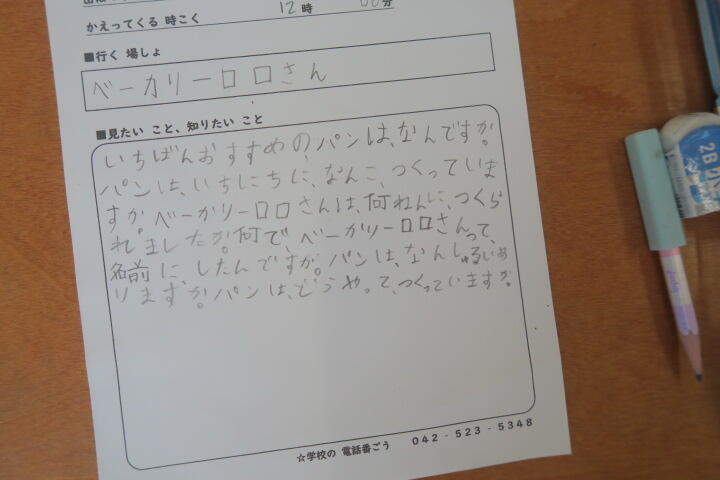 かえってくる 時こく 12時 00分
■行く 場しょ
ベーカリーロロさん
■見たい こと、知りたい こと
いちばんおすすめの、パンは、なんですか。
パンは、いちにちに、なんこ、つくっていま
すか。ベーカリーロロさんは、何ねんに、つくら
れましたか。何で、ベーカリーロロさんって、
名前に、したんですか。パンは、なんしゅるいあ
りますか。パンは、どうやって、つくっていますか。
☆学校の 電話番ごう 042-523-5348
2B